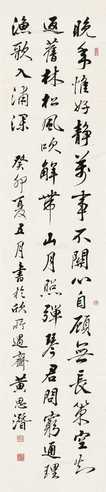 晚年惟好靜萬事不關心自顧無長策空知
返舊林松風吹解帶山月照彈琴君問窮通理
漁歌入浦深 癸卯夏五月書於欣所遇齋黃思潛